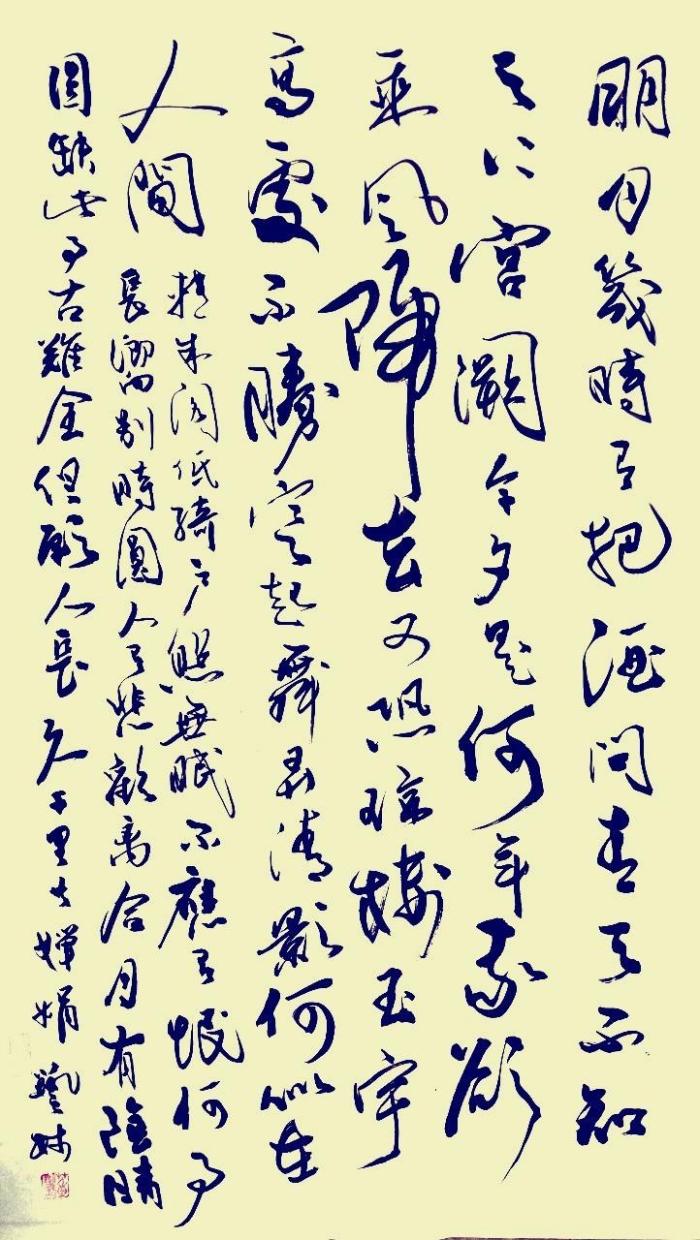 明月幾時有把酒問青天不知
天上宮闕今夕是何年我欲
乘風歸去又恐琼樓玉宇
高處不勝寒起舞弄清影何似在
人間
轉朱閣低綺戶照無眠不應有恨何事
長向別時圓人有悲歡離合月有陰晴
圓缺此事古難全但願人長久千里共嬋娟